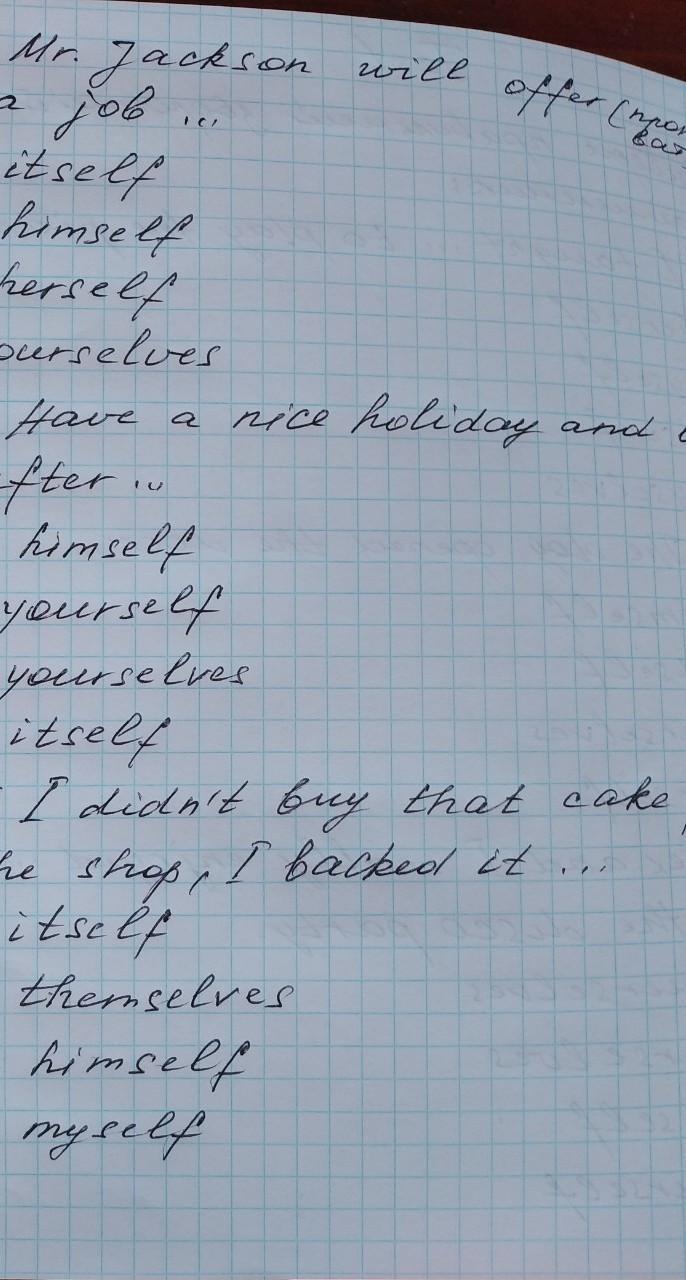 Mr. Jackson will offer (
a job ...
itself
himself
herself
ourselves
Have a nice holiday and
after ...
himself
yourself
yourselves
itself
I didn't buy that cake
the shop, I backed it ...
itself
themselves
himself
myself